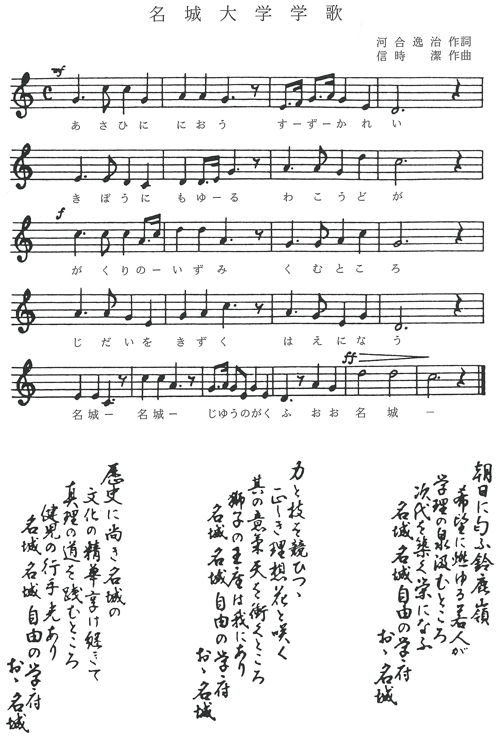 名城大学学歌
河合逸治作詞
信時 潔作曲
mf
あさひに におう すーずーかれい
きぼうに もゆーる わこうどが
f
がくりのーいずみ くむところ
じだいを きずく はえになう
ff
名城ー 名城ー じゆうのがく ふおお 名城ー
朝日に匂ふ鈴鹿嶺
希望に燃ゆる若人が
学理の泉汲むところ
次代を築く栄になふ
名城 名城 自由の学府
おゝ 名城
力と技を競ひつゝ
正しき理想花と咲く
其の意気天を衝くところ
獅子の王座は我にあり
名城 名城 自由の学府
おゝ 名城
歴史に尚き名城の
文化の精華享け継ぎて
真理の道を践むところ
健児の行手光あり
名城 名城 自由の学府
おゝ 名城